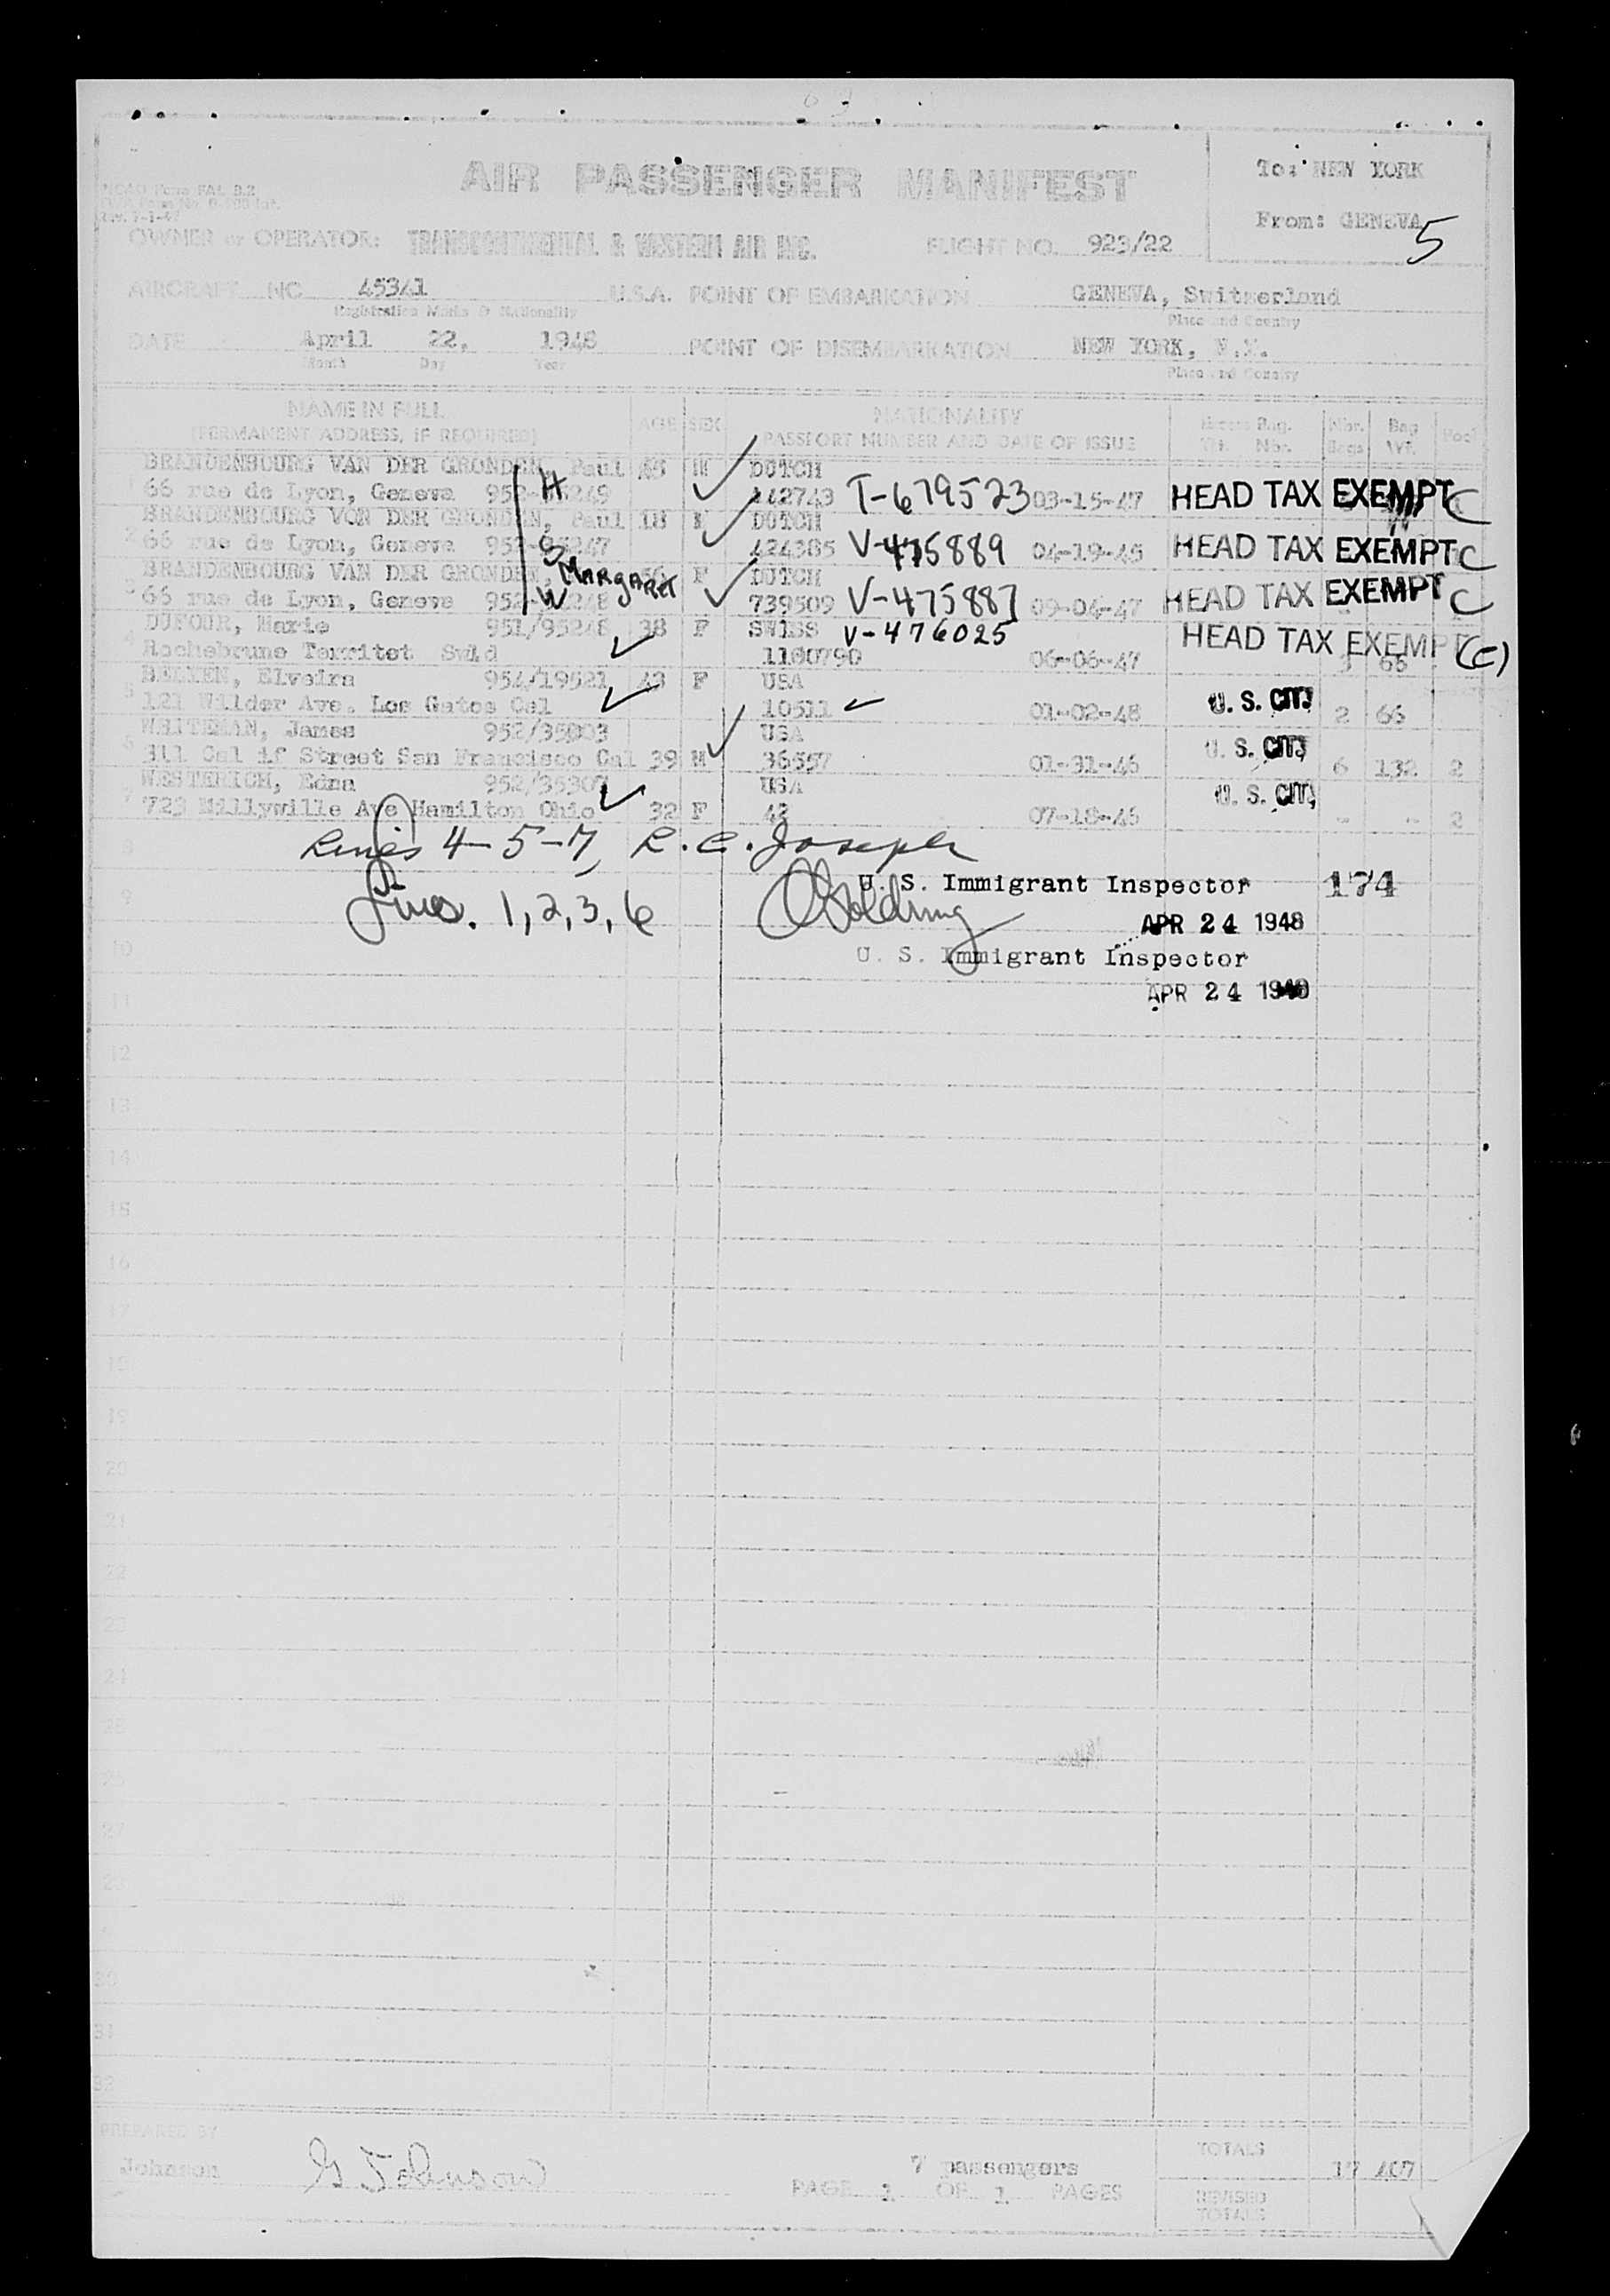 AIR PASSENGER MANIFEST
To: NEW YORK
From: GENEVA
5
OWNER or OPERATOR: TRANSCONTINENTAL & WESTERN AIR INC. FLIGHT NO. 923/22
AIRCRAFT NC 45341 U.S.A. POINT OF EMBARKATION GENEVA, Switzerland
Registration Marks & Nationality Place and Country
DATE April 22, 1948 POINT OF DISEMBARKATION NEW YORK, N.Y.
Month Day Year Place and Country
NAME IN FULL AGE SEX NATIONALITY Excess Bag. Nbr. Bag Pool
(PERMANENT ADDRESS, IF REQUIRED) PASSPORT NUMBER AND DATE OF ISSUE Wt. Nbr. Bags Wt.
BRANDENBOURG VAN DER GRONDEN, Paul M DUTCH
1 66 rue de Lyon, Geneve H 142743 T-679523 03-15-47 HEAD TAX EXEMPT C
BRANDENBOURG VON DER GRONDEN, Paul 18 DUTCH
2 66 rue de Lyon, Geneve S 424385 V-475889 04-19-45 HEAD TAX EXEMPT C
BRANDENBOURG VAN DER GRONDEN, MARGARET F DUTCH
3 66 rue de Lyon, Geneve W 739509 V-475887 09-04-47 HEAD TAX EXEMPT C
DUFOUR, Marie 951/95248 38 F SWISS V-476025 HEAD TAX EXEMPT (C)
4 Rochebrune Territet Swld 1100790 06-06-47 3 66
Elveira 954/19521 43 F USA
5 121 Wilder Ave. Los Gatos Cal 10511 01-02-48 U. S. CIT. 2 66
WHITEMAN, James 952/35003 USA
6 311 Cal if Street San Francisco Cal 39 M 36557 01-31-46 U. S. CIT. 6 132 2
WESTERICH, Edna 952/35307 USA
7 723 Millyville Ave Hamilton Ohio 32 F 42 07-18-46 U. S. CIT. - - 2
8 Lines 4-5-7, R. C. Joseph
U. S. Immigrant Inspector 174
9 Lines. 1, 2, 3, 6 Golding
APR 24 1948
10 U. S. Immigrant Inspector
11 APR 24 1948
12
13
14
15
16
17
18
19
20
21
22
23
24
25
26
27
28
30
31
32
PREPARED BY
Johnson G Johnson 7 passengers TOTALS 17 407
PAGE 1 OF 1 PAGES REVISED
TOTALS